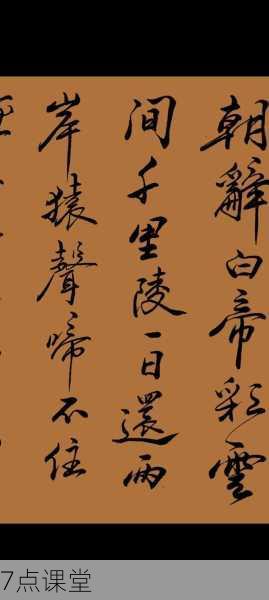 朝辭白帝彩雲
间千里陵一日還两
岸猿聲啼不住
7点课堂